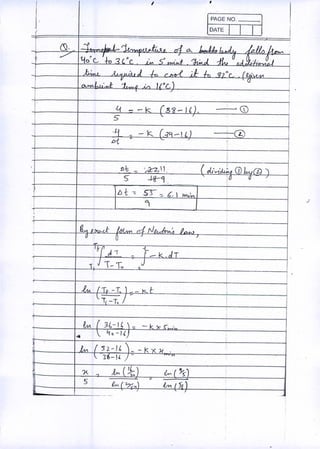 PAGE NO
DATE
Q. Temperature of a body falls from
40°C to 36°C in 5 mint. Find the additional
time required to cool it to 32°C (given
ambient temp. is 16°C)
4/5 = -K (38-16) — ①
4/Δt = -K (34-16) — ②
Δt/5 = 22/18 (dividing ① by ②)
Δt = 55/9 = 6.1 min
By exact form of Newton's Law,
∫ dT/(T-T₀) = ∫ -K.dT
ln ((T_F-T₀)/(T_i-T₀)) = -Kt
ln ((36-16)/(40-16)) = -K x 5min
ln ((32-16)/(36-16)) = -K x x min
x/5 = ln (4/5)/ln (5/6)